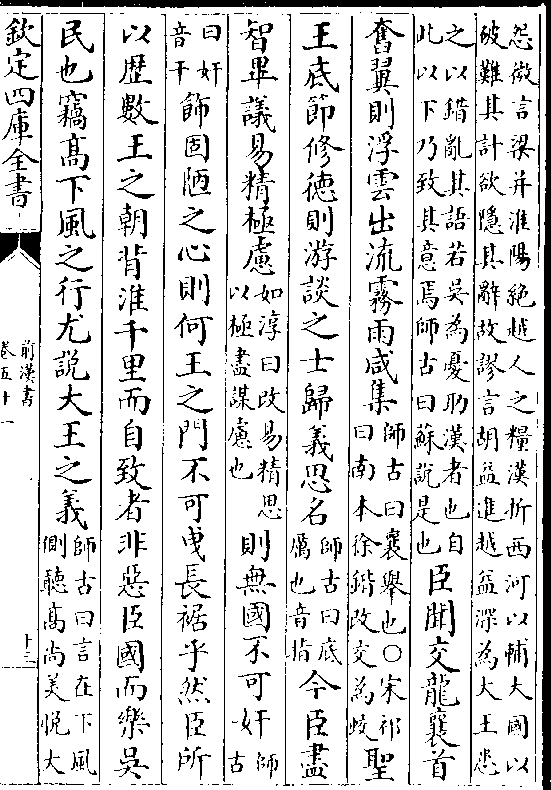 怨微言梁并淮陽絶越人之糧漢折西河以輔大國以
破難其計欲隱其辭故謬言胡益進越益深為大王患
之以錯亂其語若吳為憂助漢者也自
此以下乃致其意焉師古曰蘇說是也
臣聞交龍襄首
奮翼則浮雲出流霧雨咸集
師古曰襄舉也○宋祁
曰南本徐鍇改交為蛟
聖
王底節修徳則游談之士歸義思名
師古曰底
厲也音指
今臣盡
智畢議易精極慮
如淳曰改易精思
以極盡謀慮也
則無國不可奸
師古
曰奸
音干
飾固陋之心則何王之門不可曵長裾乎然臣所
以歴數王之朝背淮千里而自致者非惡臣國而樂吳
民也竊髙下風之行尤說大王之義
師古曰言在下風
側聽髙尚美悦大
欽定四庫全書
前漢書
卷五十一
十三